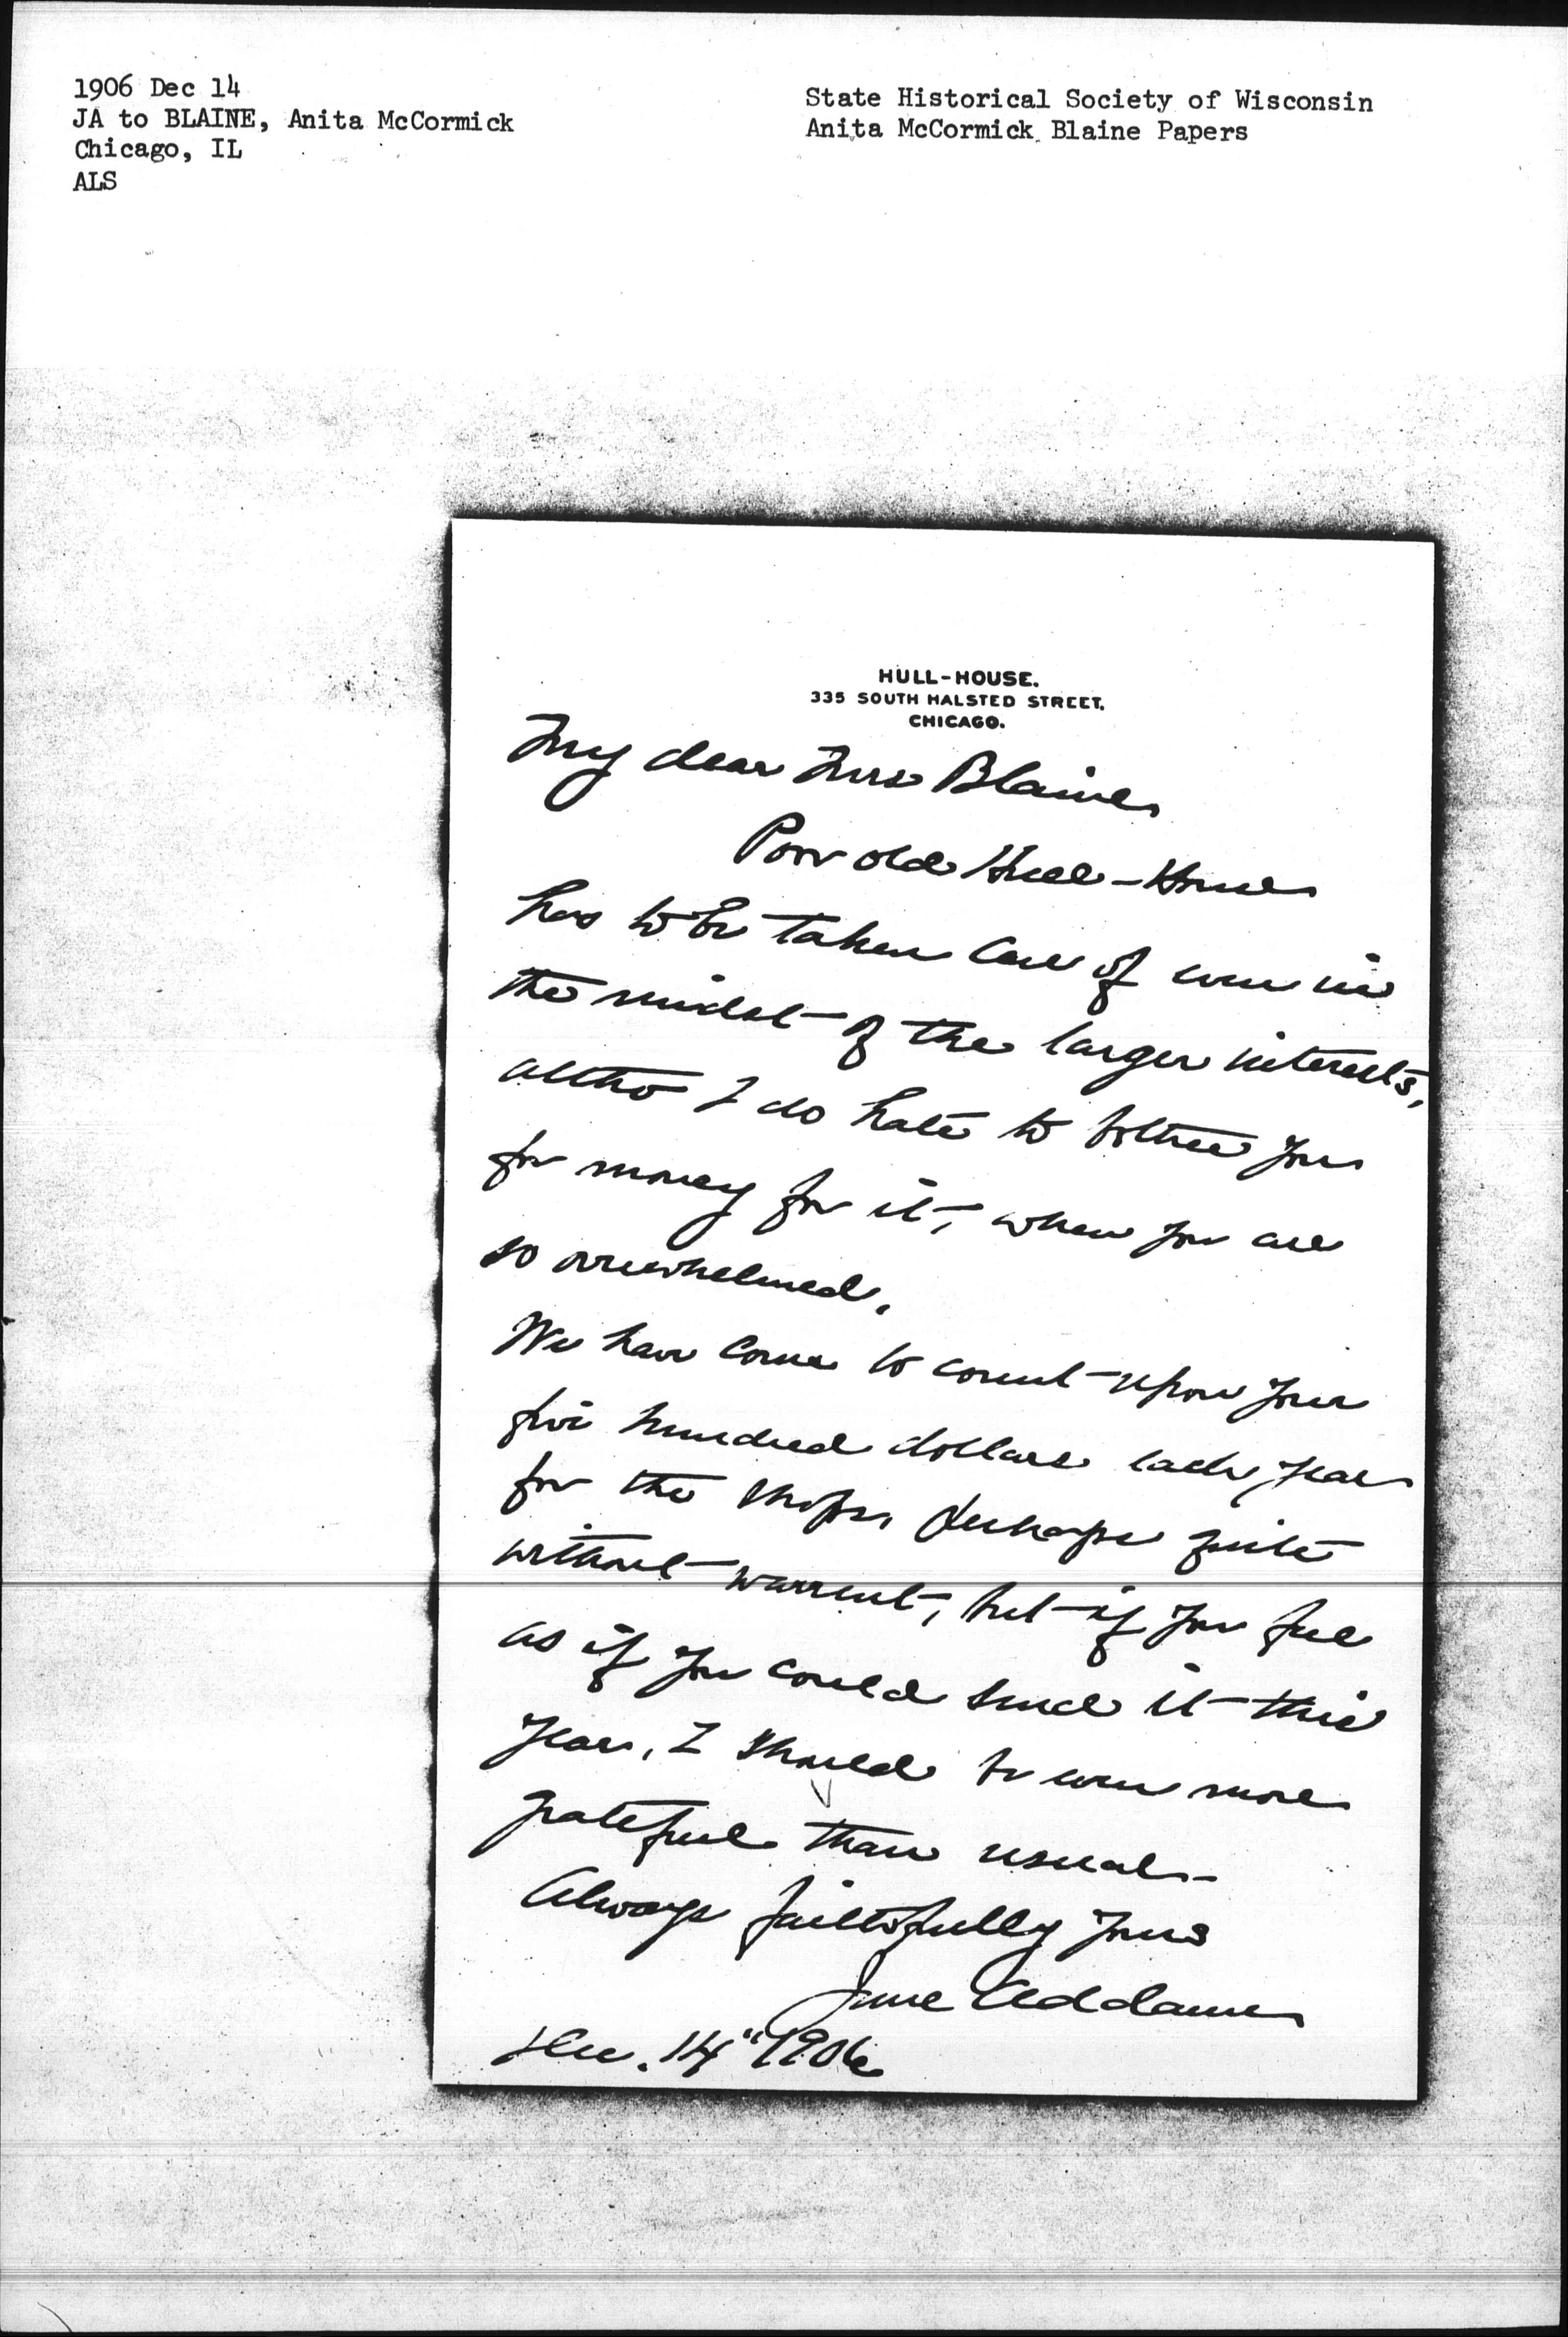 1906 Dec 14
JA to BLAINE, Anita McCormick
Chicago, IL
ALS
State Historical Society of Wisconsin
Anita McCormick Blaine Papers
HULL-HOUSE.
335 SOUTH HALSTED STREET,
CHICAGO.
My dear Mrs Blaine
Poor old Hull-House
has to be taken care of even in
the midst of the larger interests,
altho I do hate to bother you
for money for it, when you are
so overwhelmed.
We have come to count upon your
five hundred dollars each year
for the shops, perhaps quite
without warrant, but if you feel
as if you could send it this
year, I should be even more
grateful than usual.
Always faithfully yours
Jane Addams
Dec. 14" 1906